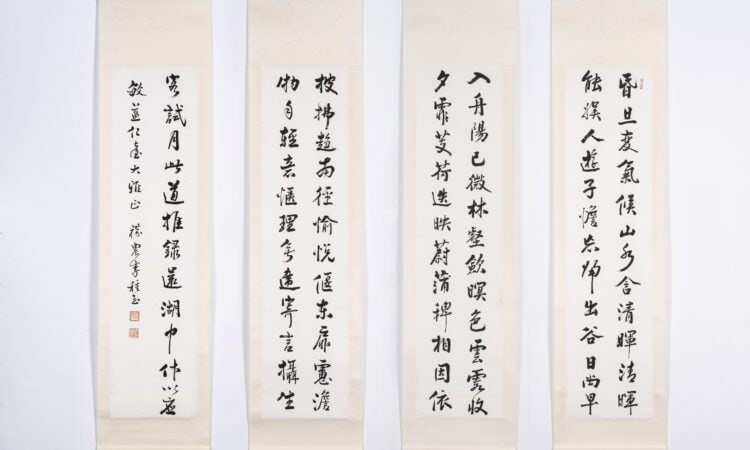 昏旦变氣候山水含清暉清暉
能娱人遊子憺忘歸出谷日尚早
入舟陽已微林壑歛暝色雲霞收
夕霏芰荷迭映蔚蒲稗相因依
披拂趨南徑愉悦偃东扉慮澹
物自輕意愜理無違寄言攝生
客試用此道推錄還湖中作以应
敏盦仁臺大雅正